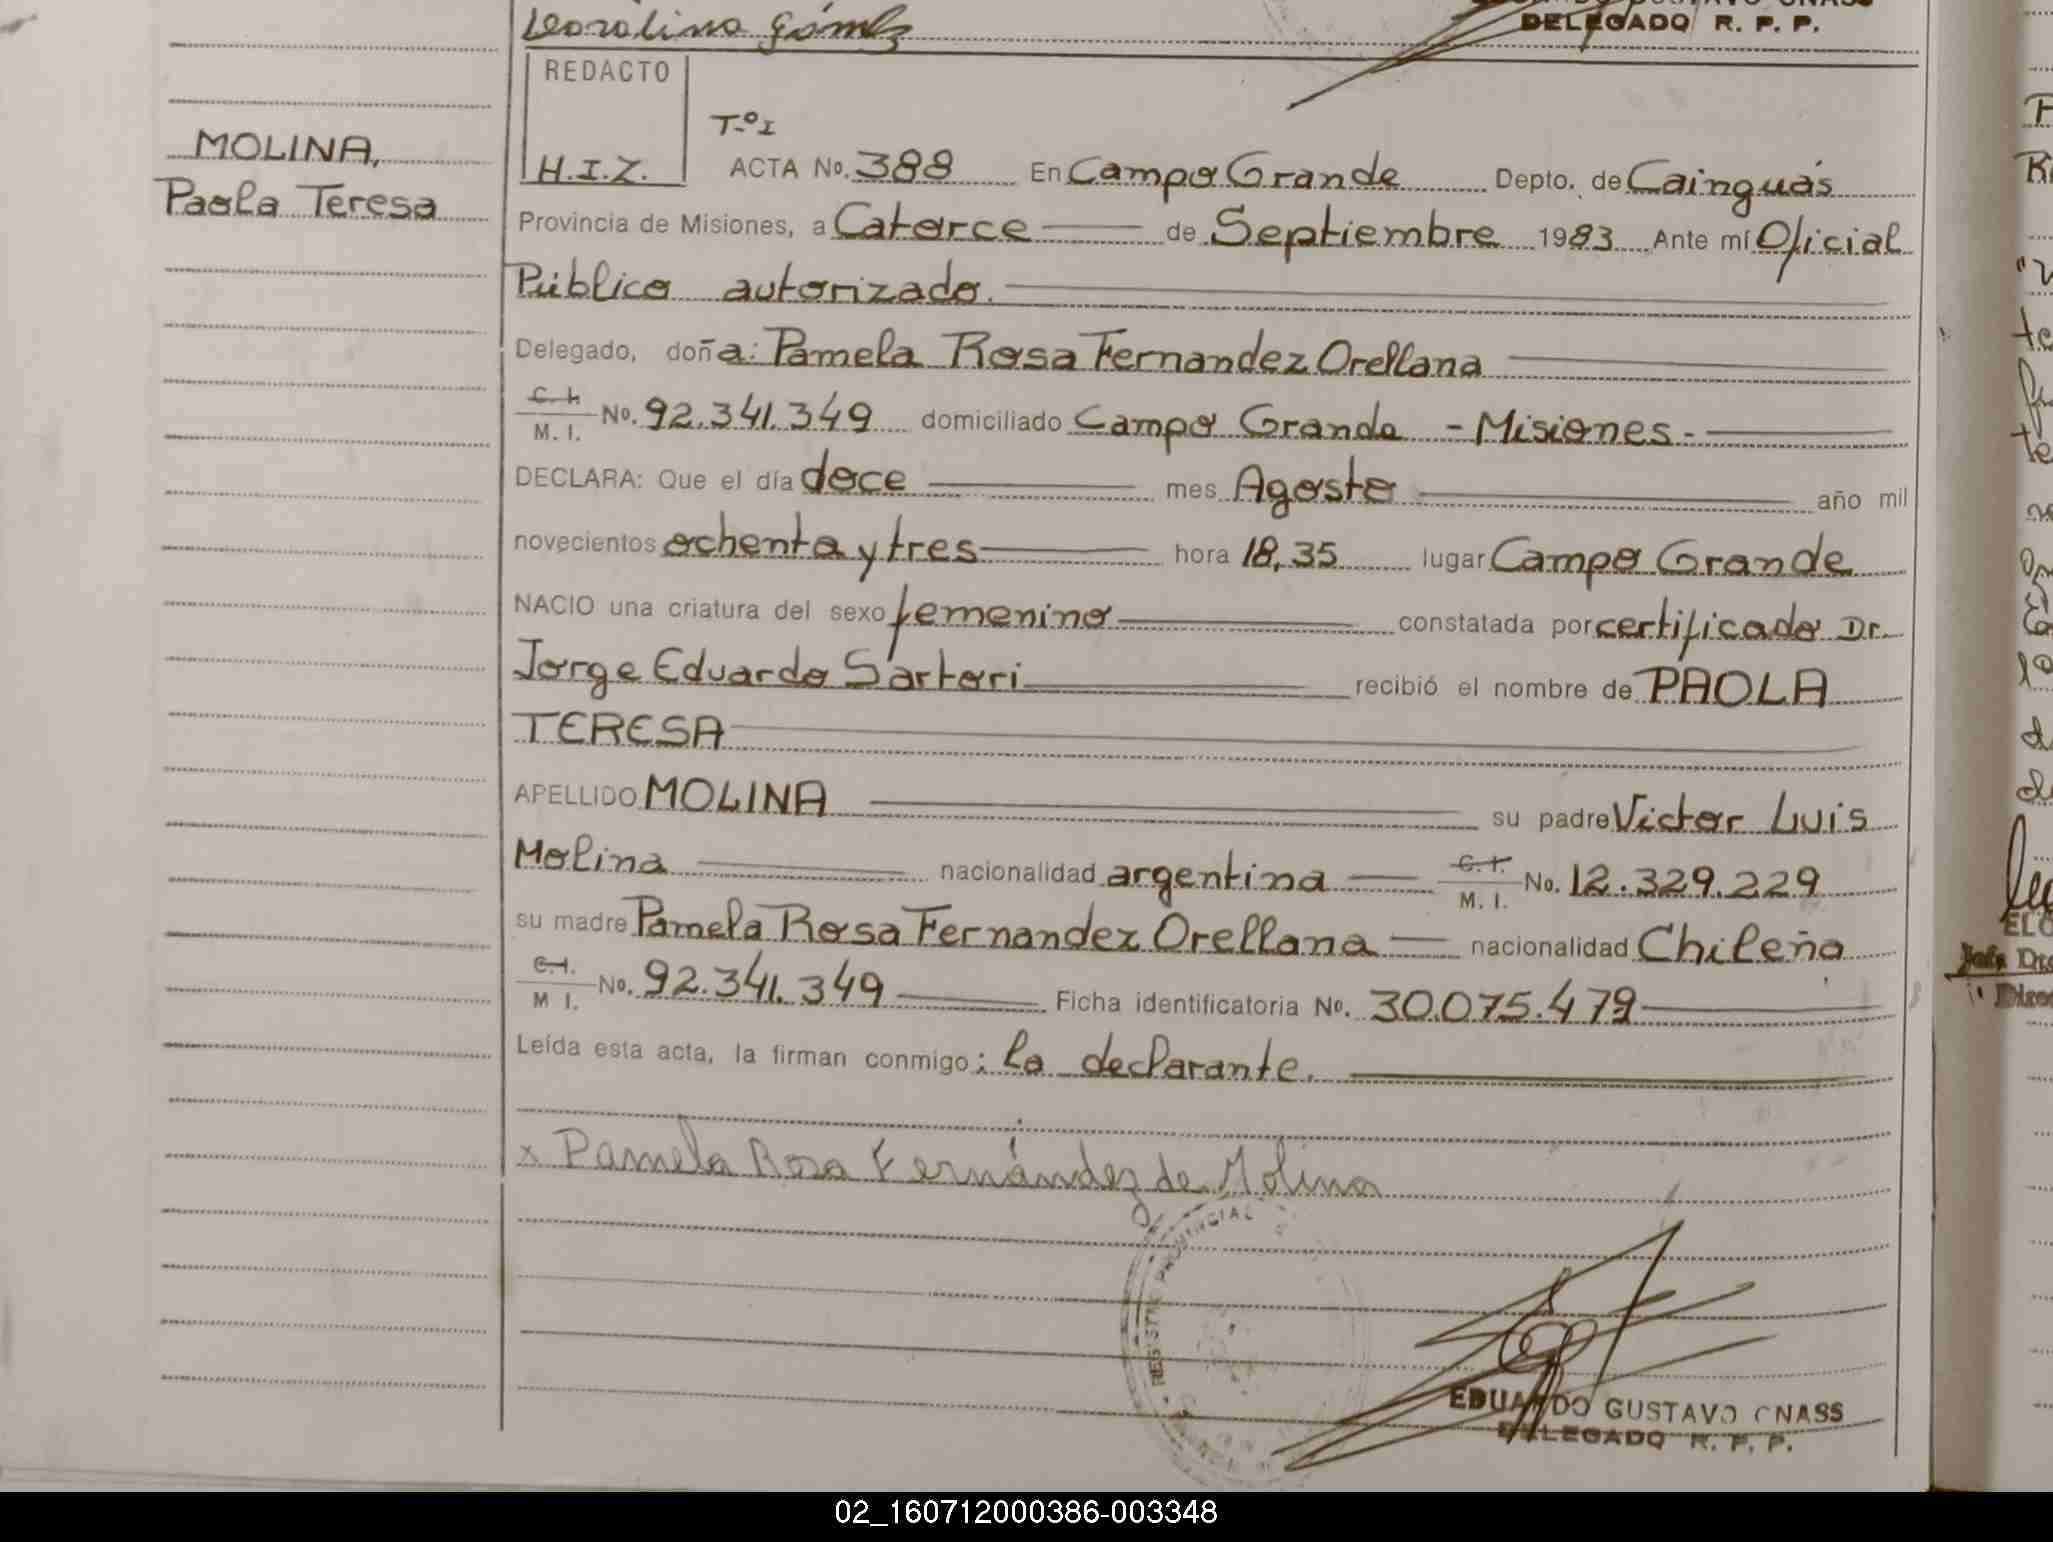 Leorolina Gómez
DELEGADO R. P. P.
REDACTO
H.I.Z.
MOLINA,
Paola Teresa
T-º I
ACTA No. 388 En Campo Grande Depto. de Cainguás
Provincia de Misiones, a Catorce de Septiembre 1983 Ante mí Oficial
Público autorizado.
Delegado, doña: Pamela Rosa Fernandez Orellana
C. I. M. I. No. 92.341.349 domiciliado Campo Grande - Misiones -
DECLARA: Que el día doce mes Agosto año mil
novecientos ochenta y tres hora 18,35 lugar Campo Grande
NACIO una criatura del sexo femenino constatada por certificado Dr.
Jorge Eduardo Sartori recibió el nombre de PAOLA
TERESA
APELLIDO MOLINA su padre Victor Luis
Molina nacionalidad argentina C. I. M. I. No. 12.329.229
su madre Pamela Rosa Fernandez Orellana nacionalidad Chileña
C. I. M I. No. 92.341.349 Ficha identificatoria No. 30.075.479
Leída esta acta, la firman conmigo: la declarante.
x Pamela Rosa Fernández de Molina
REGISTRO PROVINCIAL
EDUARDO GUSTAVO GNASS
DELEGADO R. P. P.
02_160712000386-003348